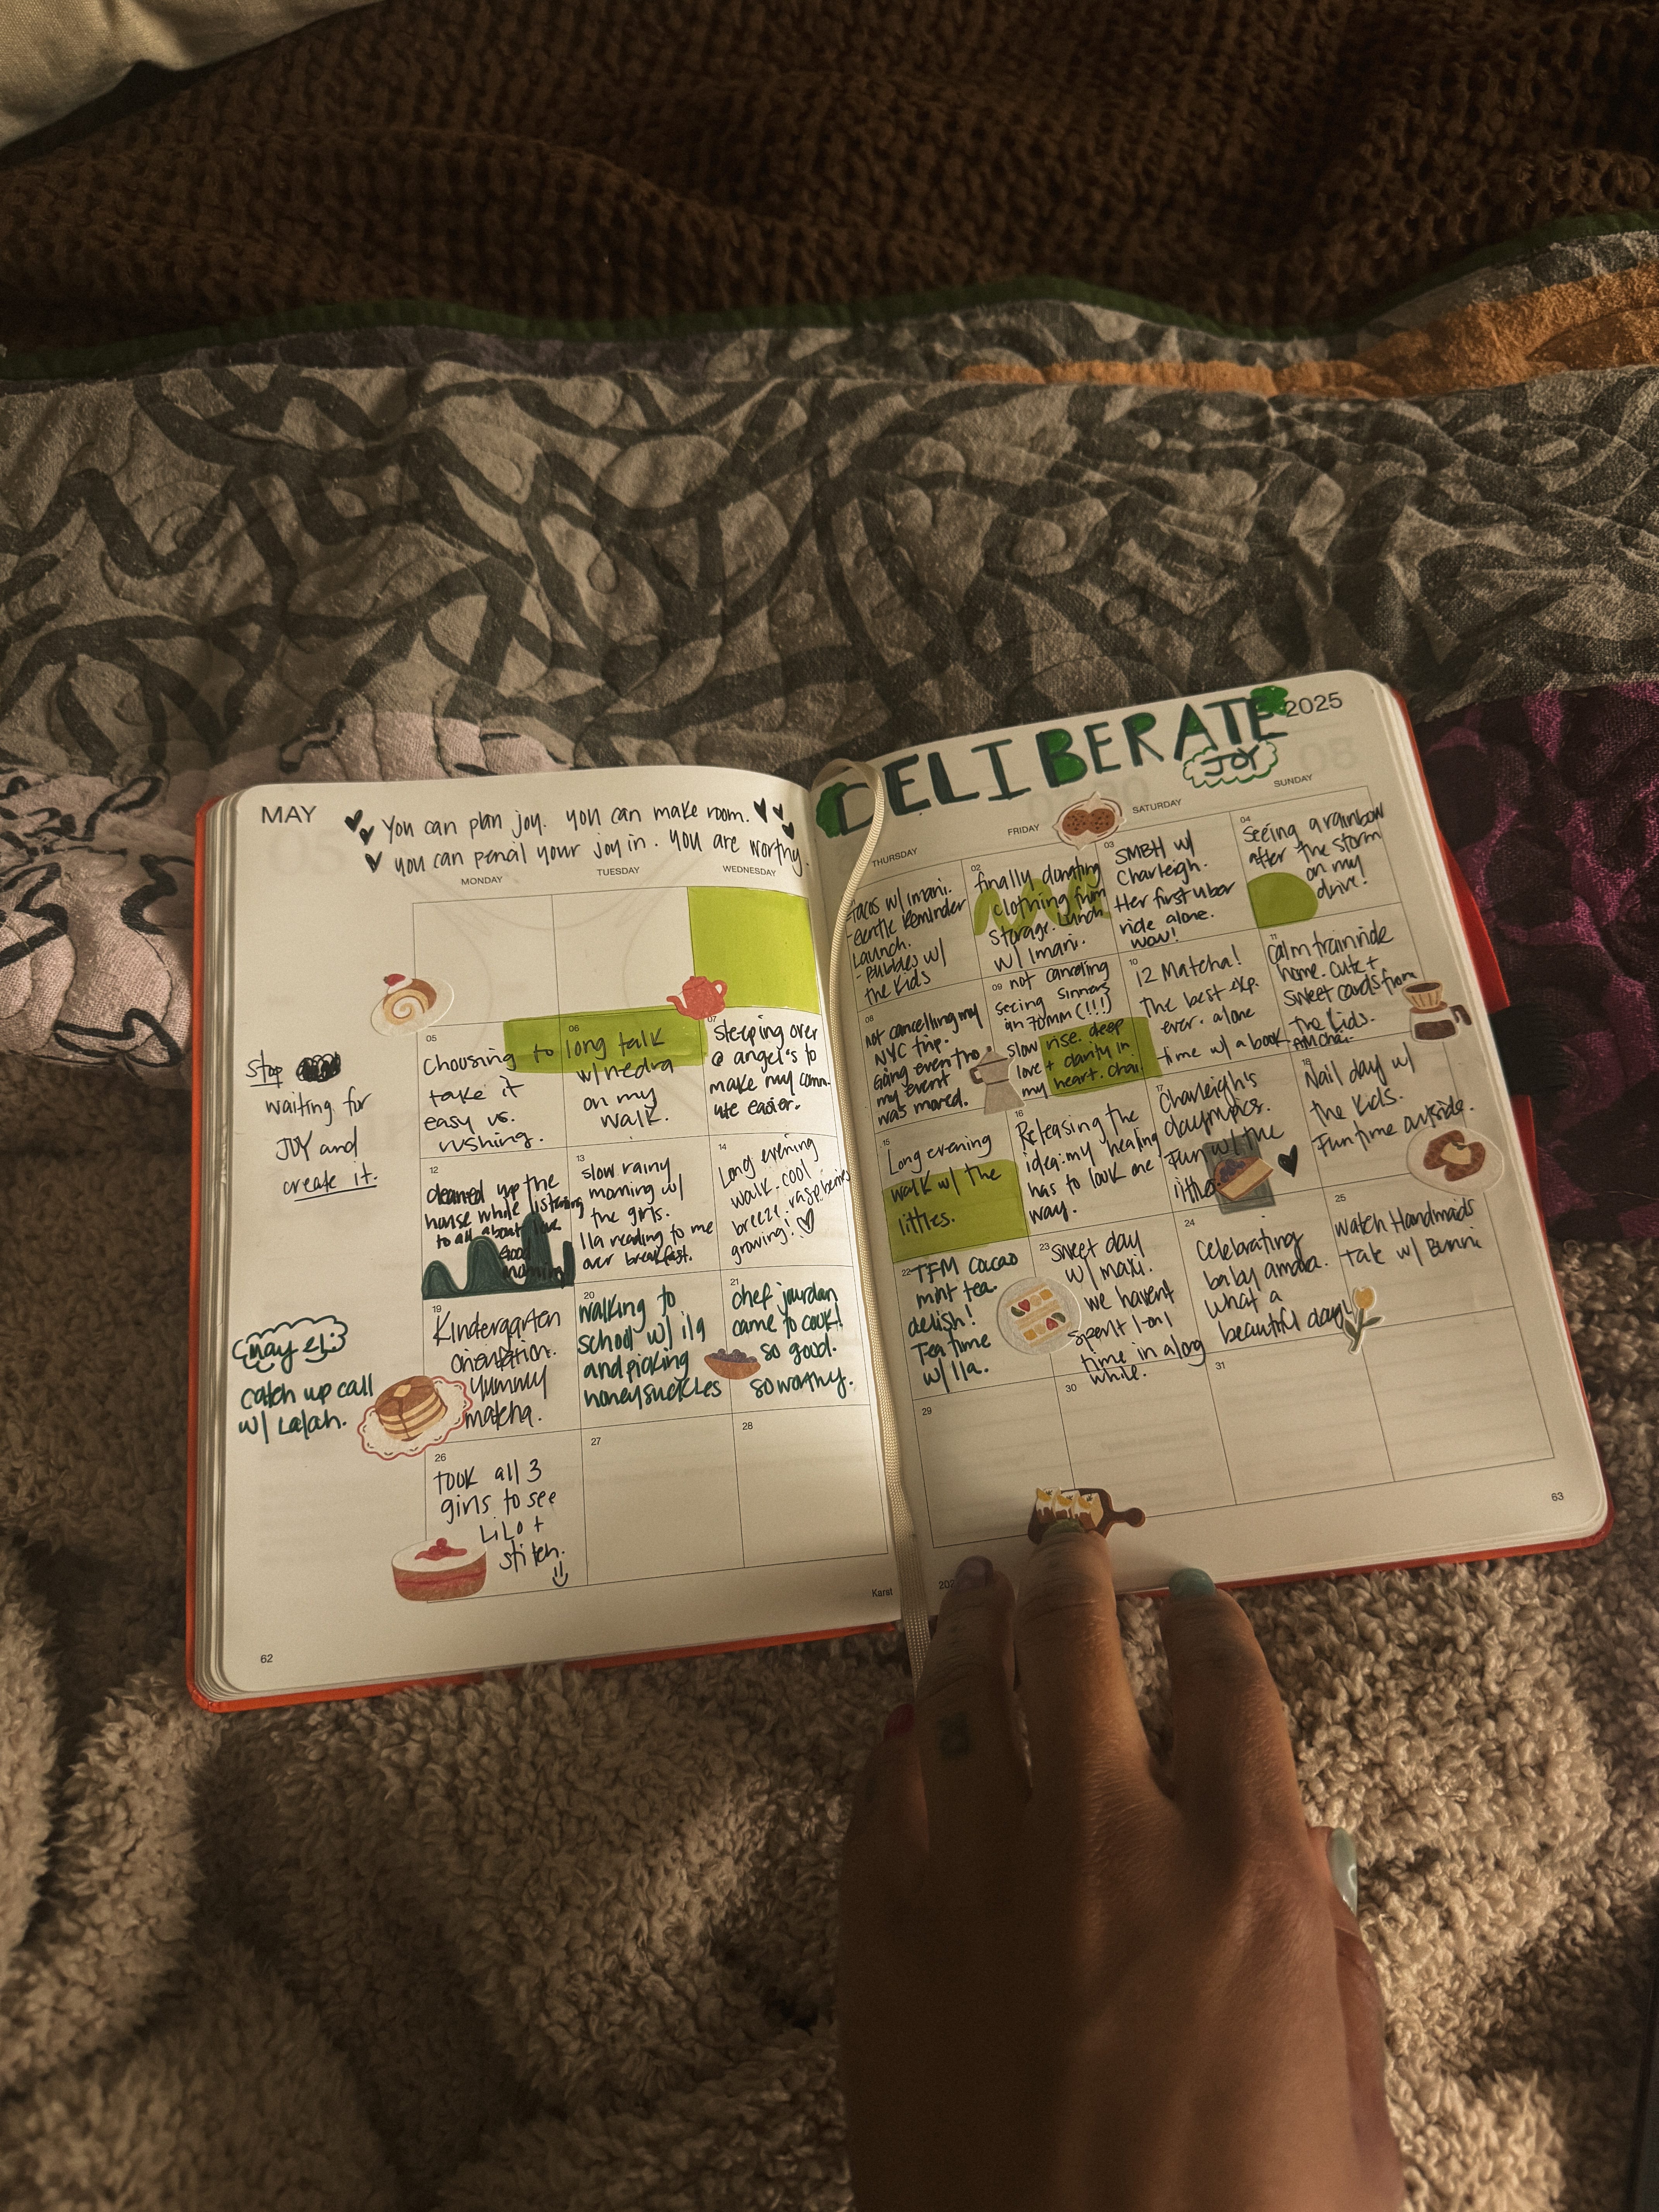 MAY
You can plan joy. you can make room.
you can pencil your joy in. you are worthy.
MONDAY
TUESDAY
WEDNESDAY
Stop
waiting for
JOY and
create it.
05
Choosing to
take it
easy vs.
rushing.
06
long talk
w/ nedra
on my
walk.
07
Sleeping over
@ angel's to
make my comm-
ute easier.
12
cleaned up the
house while listening
to all about love.
Good
morning
13
slow rainy
morning w/
the girls.
Ila reading to me
over breakfast.
14
Long evening
walk. cool
breeze. raspberries
growing!
may 21:
catch up call
w/ Lalah.
19
Kindergarten
orientation.
yummy
matcha.
20
walking to
school w/ ila
and picking
honeysuckles
21
chef jourdan
came to cook!
so good.
so worthy.
26
Took all 3
girls to see
LiLo +
stitch.
27
28
62
Karst
DELIBERATE
JOY
2025
THURSDAY
FRIDAY
SATURDAY
SUNDAY
-Tacos w/ Imani.
-Gentle Reminder
Launch.
-Bubbles w/
the Kids
02
finally donating
clothing from
storage. Lunch
w/ Imani.
03
SMBH w/
Charleigh.
Her first uber
ride alone.
wow!
04
Seeing a rainbow
after the storm
on my
drive!
08
not cancelling my
NYC trip.
Going even tho
my event
was moved.
09
not canceling
seeing sinners
in 70mm (!!!)
slow rise. deep
love + clarity in
my heart. chai.
10
12 Matcha!
The best exp.
ever. alone
time w/ a book.
11
Calm train ride
home. Cute +
sweet cards from
the kids.
AM Chai.
15
Long evening
walk w/ the
littles.
16
Releasing the
idea: my healing
has to look one
way.
17
Charleigh's
daylympics.
Fun w/ the
littles
18
Nail day w/
the kids.
Fun time outside.
22
TFM Cacao
mint tea.
delish!
Tea time
w/ Ila.
23
sweet day
w/ maxi.
we haven't
spent 1-on1
time in a long
while.
24
Celebrating
baby amara.
What a
beautiful day!
25
watch Handmaids
Tale w/ Bunni
29
30
31
202
63